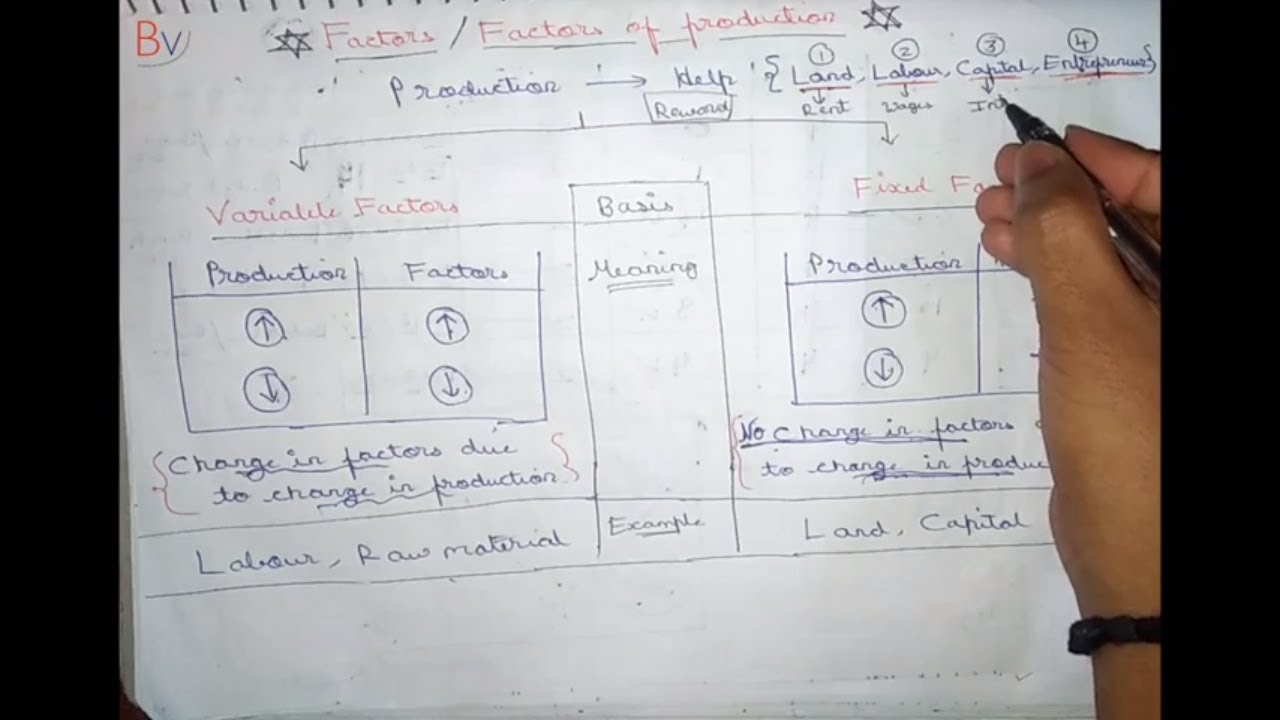 BV
Factors / Factors of production
① ② ③ ④
Production → Help { Land, Labour, Capital, Entrepreneur}
Reward Rent Wages Int
Variable Factors Basis Fixed Fa
Production Factors Meaning Production
↑ ↑ ↑
↓ ↓ ↓
{Change in factors due} {No change in factors
to change in production to change in produc
Labour, Raw material Example Land, Capital